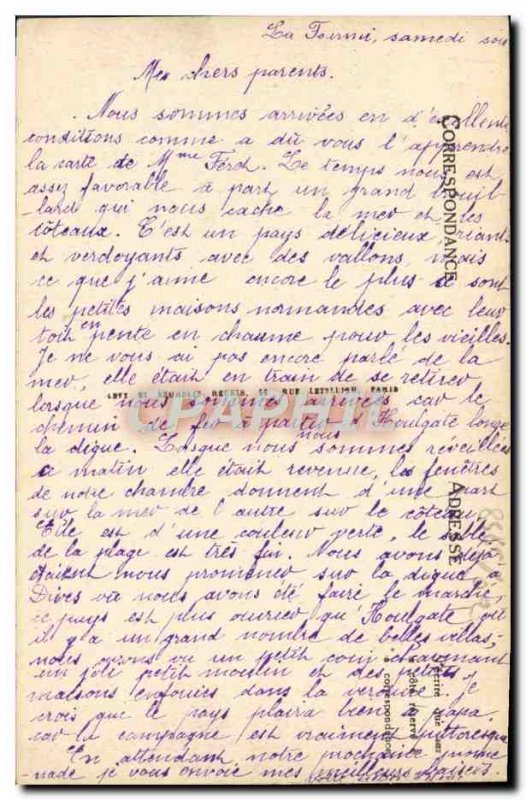 La Fourni, samedi soir
Mes chers parents.
Nous sommes arrivées en d'excellentes
conditions comme a dû vous l'apprendre
la carte de Mme Férd. Le temps nous est
assez favorable à part un grand brouil-
-lard qui nous cache la mer et les
côteaux. C'est un pays délicieux riant
et verdoyants avec des vallons mais
ce que j'aime encore le plus ce sont
les petites maisons normandes avec leur
toit en pente en chaume pour les vieilles.
Je ne vous ai pas encore parlé de la
mer, elle était en train de se retirer
LEVY ET NEURDEIN REUNIS, 44 RUE LETELLIER, PARIS
lorsque nous sommes arrivées car le
CPAPHIL
chemin de fer à partir d'Houlgate longe
la digue. Lorsque nous nous sommes réveillées
ce matin elle était revenue, les fenêtres
de notre chambre donnent d'une part
sur la mer de l'autre sur le coteau.
Elle est d'une couleur verte, le sable
de la plage est très fin. Nous avons déjà
étaient nous promener sur la digue, à
Dives où nous avons été faire le marché,
ce pays est plus ouvrier qu'Houlgate où
il y a un grand nombre de belles villas,
nous avons vu un petit coin charmant
un joli petit moulin et des petites
maisons enfouies dans la verdure. Je
crois que le pays plaira bien à papa
car la campagne est vraiment pittoresque
En attendant notre prochaine prome-
nade je vous envoie mes meilleurs baisers.
CORRESPONDANCE
ADRESSE